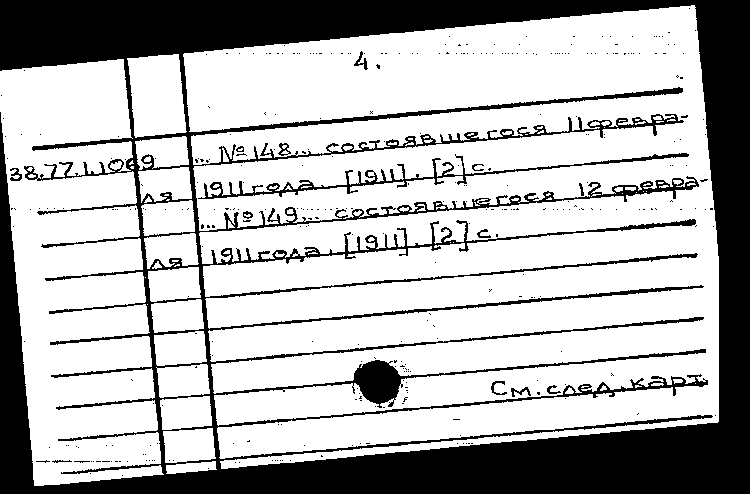 4.
38.77.1.1069 ... № 148... состоявшегося 11 февра-
ля 1911 года. [1911]. [2] с.
... № 149... состоявшегося 12 февра-
ля 1911 года. [1911]. [2] с.
См. след. карт.